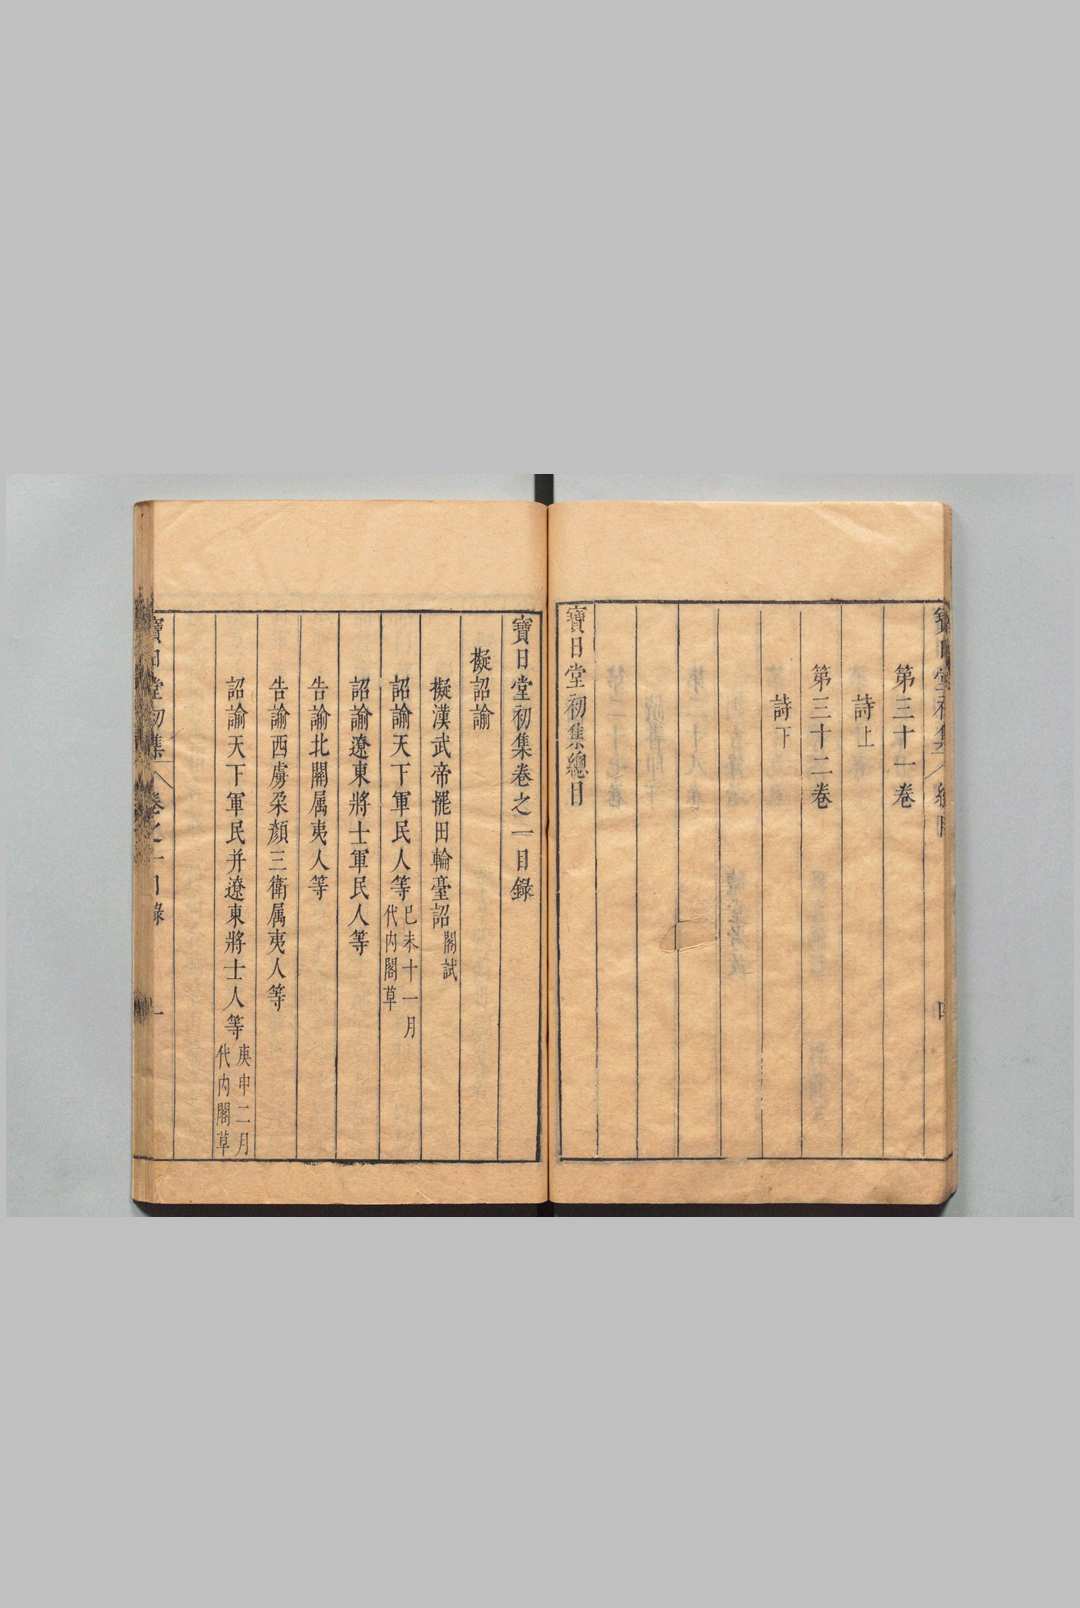 第三十一卷
詩上
第三十二卷
詩下
寶日堂初集總目
寶日堂初集卷之一目錄
擬詔諭
擬漢武帝罷田輪臺詔閣試
詔諭天下軍民人等己未十一月代内閣草
詔諭遼東將士軍民人等
告諭北關属夷人等
告諭西虜朶顏三衛属夷人等
詔諭天下軍民并遼東將士人等庚申二月代内閣草
寶日堂初集 卷之一目錄 一